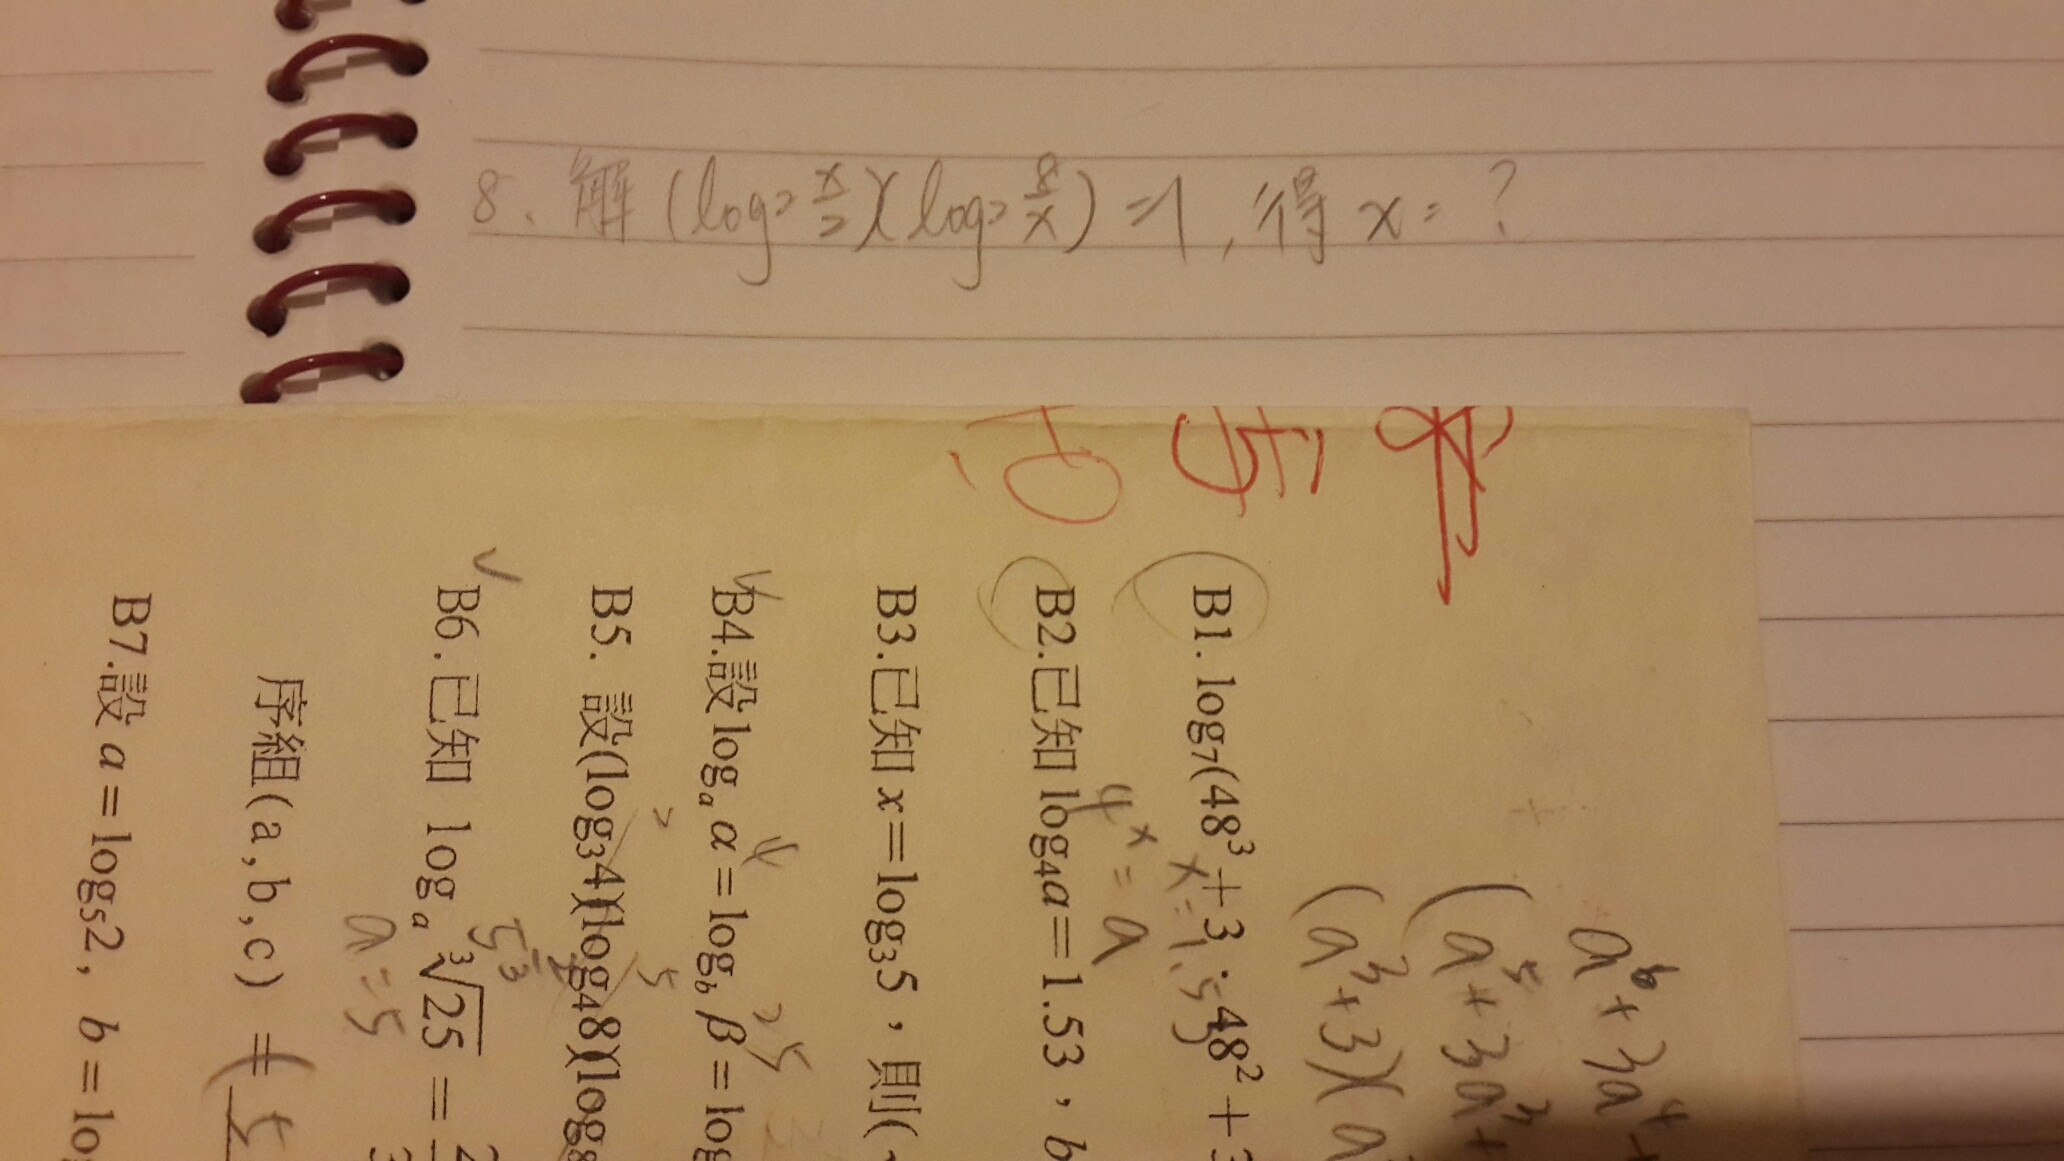 8. 解 (log₂ x/2)(log₂ 8/x) =1, 得 x = ?
B1. log₇(48³+3·48²+3
B2.已知 log₄a=1.53，b
4ˣ = a
x=1.53
B3.已知 x=log₃5，則(
B4.設 logₐ α=log_b β=log
B5. 設(log₃4)(log₄8)(log₈
B6.已知 logₐ ³√25 =
a=5
序組(a,b,c) =(5
B7.設 a=log₅2, b=lo
a⁶+3a⁴
(a⁵+3a³+
(a³+3)(a